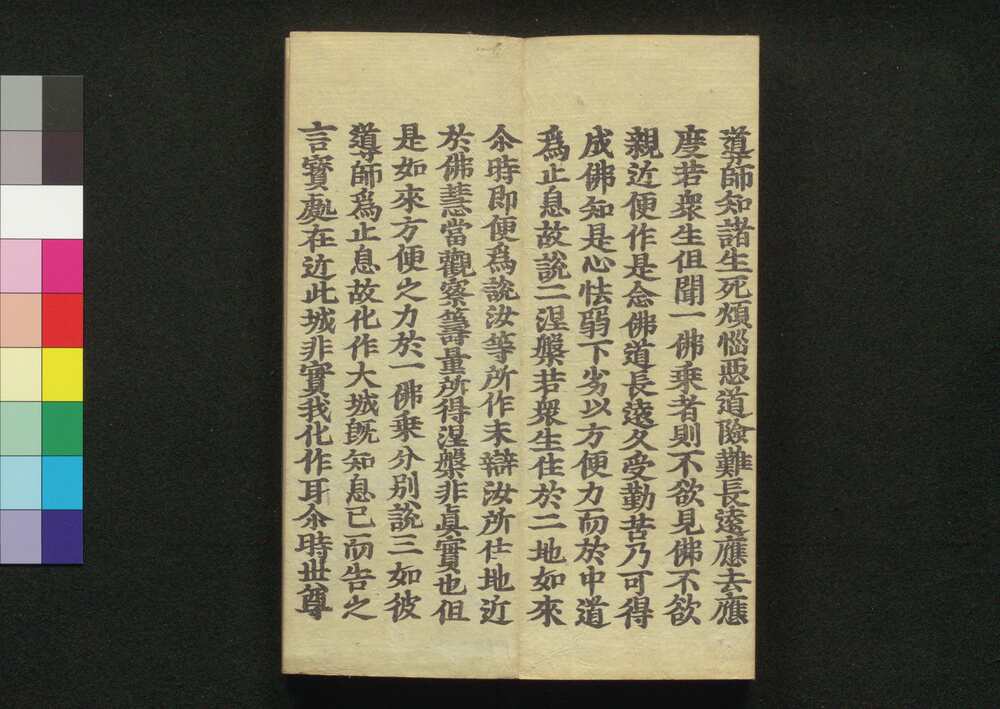 導師知諸生死煩惱惡道險難長遠應去應
度若衆生但聞一佛乘者則不欲見佛不欲
親近便作是念佛道長遠久受勤苦乃可得
成佛知是心怯弱下劣以方便力而於中道
爲止息故說二涅槃若衆生住於二地如來
尒時即便爲說汝等所作未辯汝所住地近
於佛慧當觀察籌量所得涅槃非眞實也但
是如來方便之力於一佛乘分別說三如彼
導師爲止息故化作大城旣知息已而告之
言寶處在近此城非實我化作耳尒時世尊